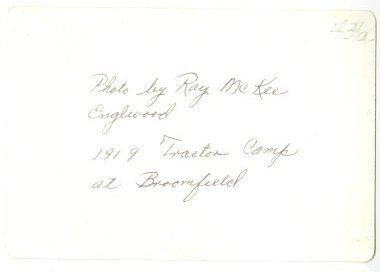 Photo by Ray McKee
Englwood
1919 Tractor Camp
at Broomfield